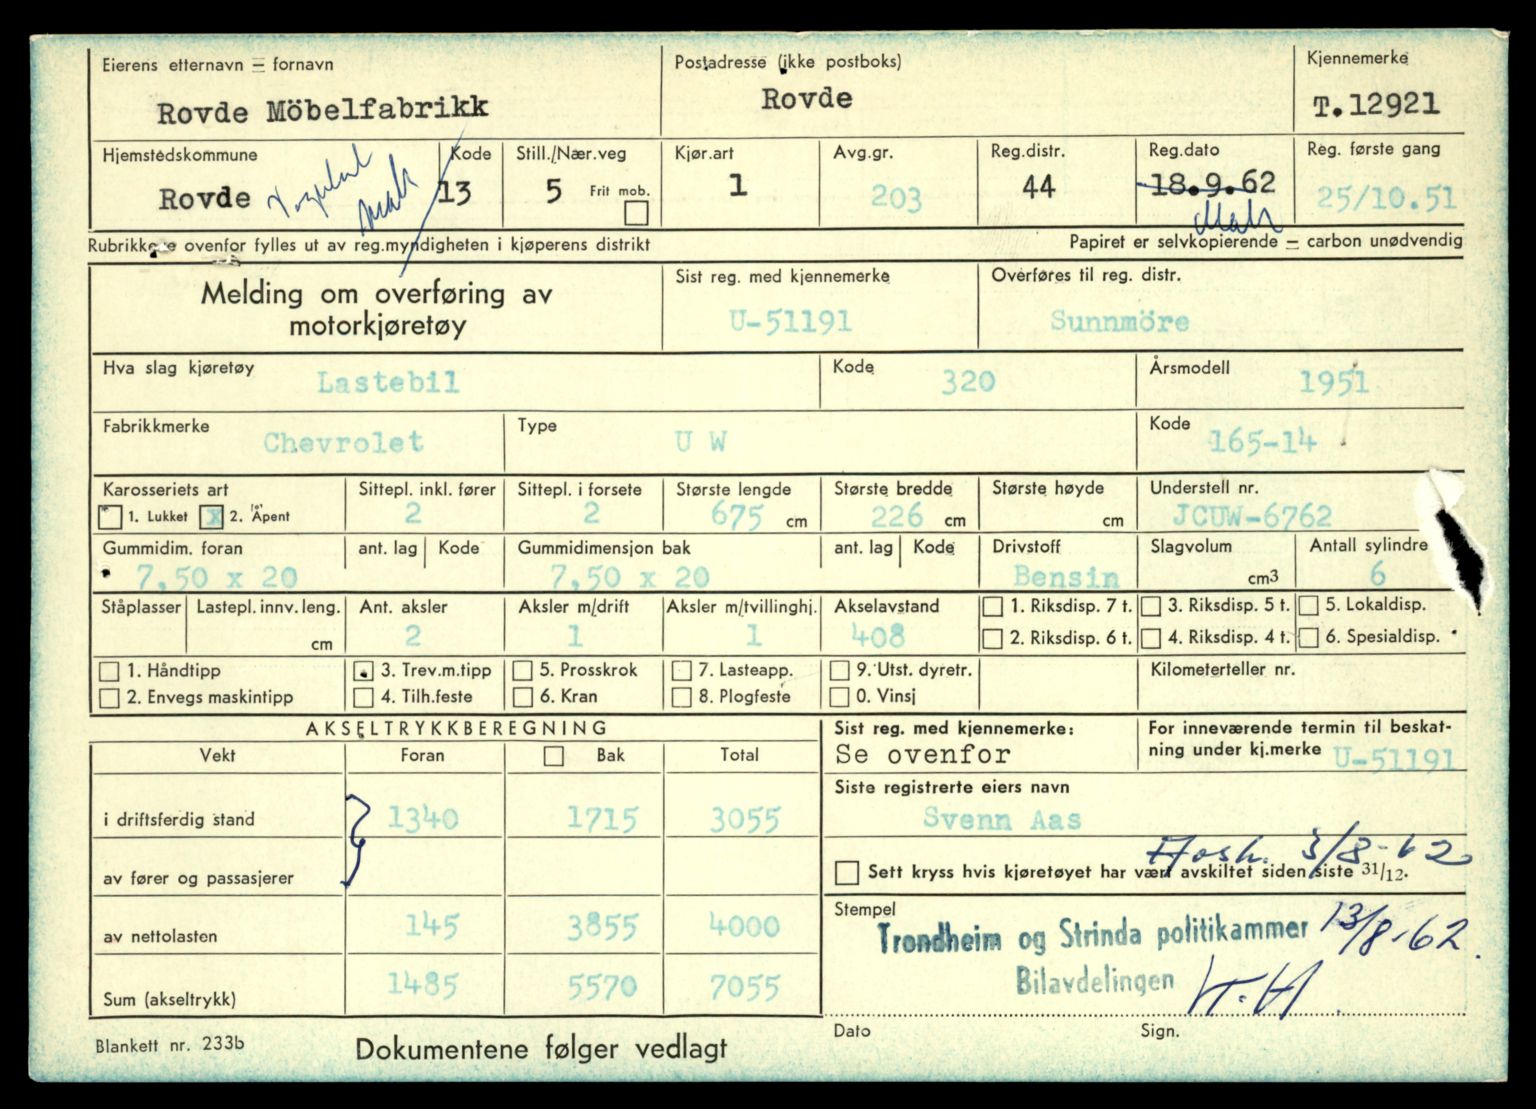 Eierens etternavn — fornavn Postadresse (ikke postboks) Kjennemerke
Rovde Möbelfabrikk Rovde T.12921
Hjemstedskommune Kode Still./Nær.veg Kjør.art Avg.gr. Reg.distr. Reg.dato Reg. første gang
Rovde 13 5 Frit mob. 1 203 44 18.9.62 25/10.51
Rubrikkene ovenfor fylles ut av reg.myndigheten i kjøperens distrikt Papiret er selvkopierende — carbon unødvendig
Melding om overføring av
motorkjøretøy
Sist reg. med kjennemerke Overføres til reg. distr.
U-51191 Sunnmöre
Hva slag kjøretøy Kode Årsmodell
Lastebil 320 1951
Fabrikkmerke Type Kode
Chevrolet U W 165-14
Karosseriets art Sittepl. inkl. fører Sittepl. i forsete Største lengde Største bredde Største høyde Understell nr.
1. Lukket X 2. Åpent 2 2 675 cm 226 cm cm JCUW-6762
Gummidim. foran ant. lag Kode Gummidimensjon bak ant. lag Kode Drivstoff Slagvolum Antall sylindre
7,50 x 20 7,50 x 20 Bensin cm3 6
Ståplasser Lastepl. innv. leng. Ant. aksler Aksler m/drift Aksler m/tvillinghj. Akselavstand 1. Riksdisp. 7 t. 3. Riksdisp. 5 t. 5. Lokaldisp.
cm 2 1 1 408 2. Riksdisp. 6 t. 4. Riksdisp. 4 t. 6. Spesialdisp.
1. Håndtipp 3. Trev.m.tipp 5. Prosskrok 7. Lasteapp. 9. Utst. dyretr. Kilometerteller nr.
2. Envegs maskintipp 4. Tilh.feste 6. Kran 8. Plogfeste 0. Vinsj
AKSELTRYKKBEREGNING
Vekt Foran Bak Total
i driftsferdig stand 1340 1715 3055
av fører og passasjerer
av nettolasten 145 3855 4000
Sum (akseltrykk) 1485 5570 7055
Sist reg. med kjennemerke: For inneværende termin til beskat-
Se ovenfor ning under kj.merke U-51191
Siste registrerte eiers navn
Svenn Aas
3/8-62
Sett kryss hvis kjøretøyet har vært avskiltet siden siste 31/12.
Stempel
Trondheim og Strinda politikammer 13/8-62.
Bilavdelingen
Dato Sign.
Blankett nr. 233b Dokumentene følger vedlagt